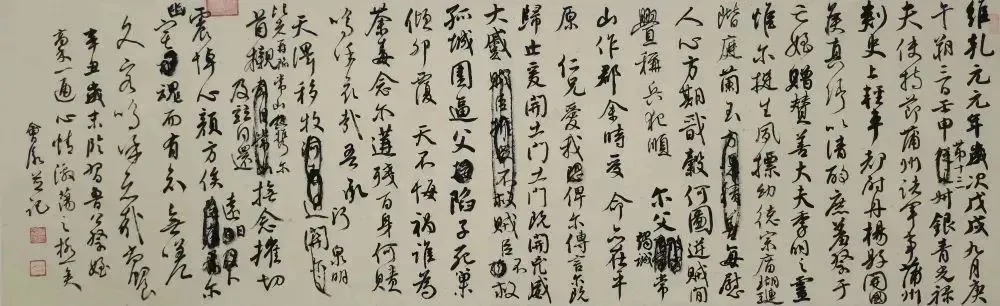 維乾元元年歲次戊戌九月庚
午朔三日壬申第十三叔銀青光祿
夫使持節蒲州諸軍事蒲州
刺史上輕車都尉丹楊縣開國
侯真卿以清酌庶羞祭于
亡姪贈贊善大夫季明之靈
惟爾挺生夙標幼德宗廟瑚璉
階庭蘭玉方憑積善每慰
人心方期戩穀何圖逆賊間
釁稱兵犯順 爾父竭誠常
山作郡余時受 命亦在平
原 仁兄愛我俾爾傳言爾既
歸止爰開土門土門既開兇威
大蹙賊臣不救
孤城圍逼父陷子死巢
傾卵覆 天不悔禍誰為
荼毒念爾遘殘百身何贖
嗚呼哀哉吾承
天澤移牧河關泉明
比者再陷常山攜爾
首櫬及茲同還撫念摧切
震悼心顏方俟遠日卜爾
幽宅魂而有知無嗟
久客嗚呼哀哉尚饗
辛丑歲末臨習魯公祭姪
稿一通心情激蕩之極矣
並記